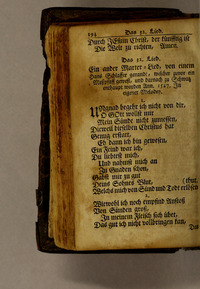 114 Das 31. Lied.
Durch JEsum Christ, der künfftig ist
Die Welt zu richten, Amen.
Das 32. Lied.
Ein ander Marter-Lied, von einem
Hans Schlaffer genandt, welcher zuvor ein
Meßpriest gewest, und darnach zu Schwatz
enthaupt worden Ann. 1527. In
eigener Melodey.
1.
UNgnad begehr ich nicht von dir,
O GOtt wollst mir
Mein Sünde nicht zumessen,
Dieweil dieselben Christus hat
Genug erstatt,
Eh dann ich bin gewesen.
Ein Feind war ich,
Du liebest mich,
Und nahmst mich an
Zu Gnaden schon,
Gabst mir zu gut
Deins Sohnes Blut, (thut.
Welchs mich von Sünd und Todt erlösen
2.
Wiewohl ich noch empfind Anstoß
Von Sünden groß,
In meinem Fleisch sich übet,
Das gut ich nicht vollbringen kan,
Das